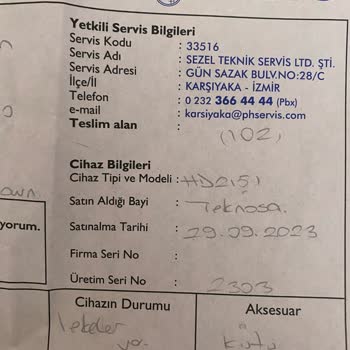 Yetkili Servis Bilgileri
Servis Kodu : 33516
Servis Adı : SEZEL TEKNİK SERVİS LTD. ŞTİ.
Servis Adresi : GÜN SAZAK BULV.NO:28/C
İlçe/İl : KARŞIYAKA - İZMİR
Telefon : 0 232 366 44 44 (Pbx)
e-mail : karsiyaka@phservis.com
Teslim alan : (102)
Cihaz Bilgileri
Cihaz Tipi ve Modeli : HD2151
Satın Aldığı Bayi : Teknosa.
yorum.
Satınalma Tarihi : 29.09.2023
Firma Seri No :
Üretim Seri No : 2303
Cihazın Durumu
Aksesuar
lekeler
Kutu